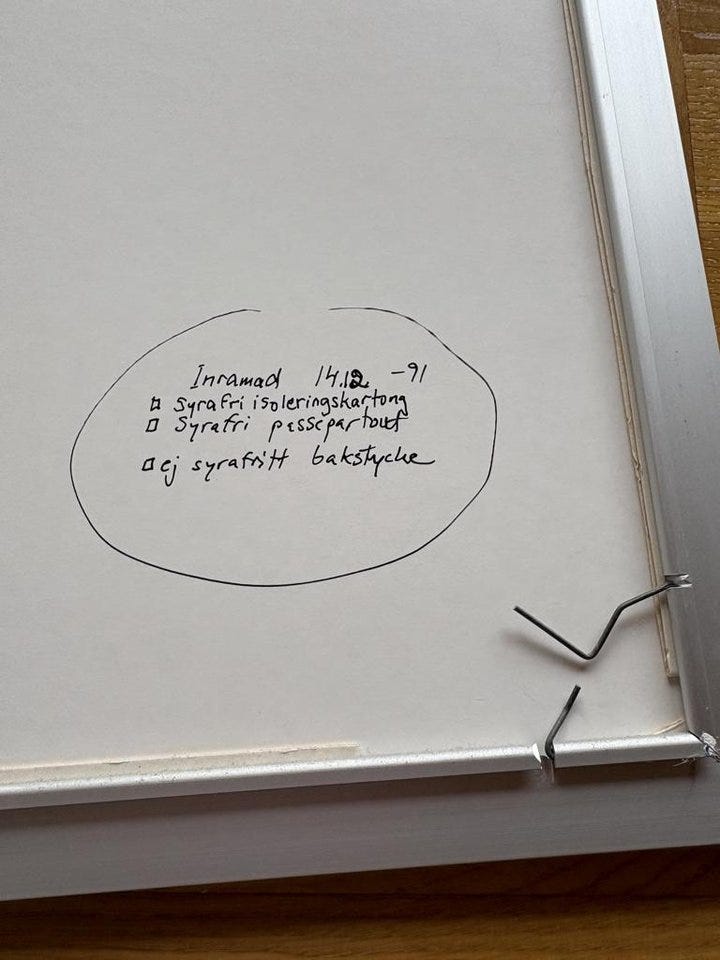 Inramad 14.12 -91
□ Syrafri isoleringskartong
□ Syrafri passepartout
□ ej syrafritt bakstycke